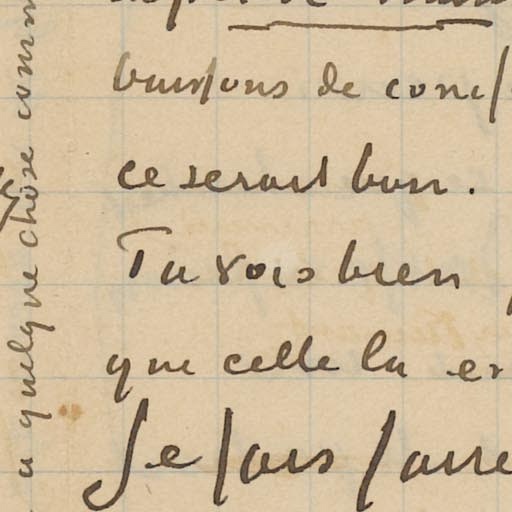 buissons de
ce serait bon.
Tu vois bien
que celle la
Je fais faire
a quelque chose comm